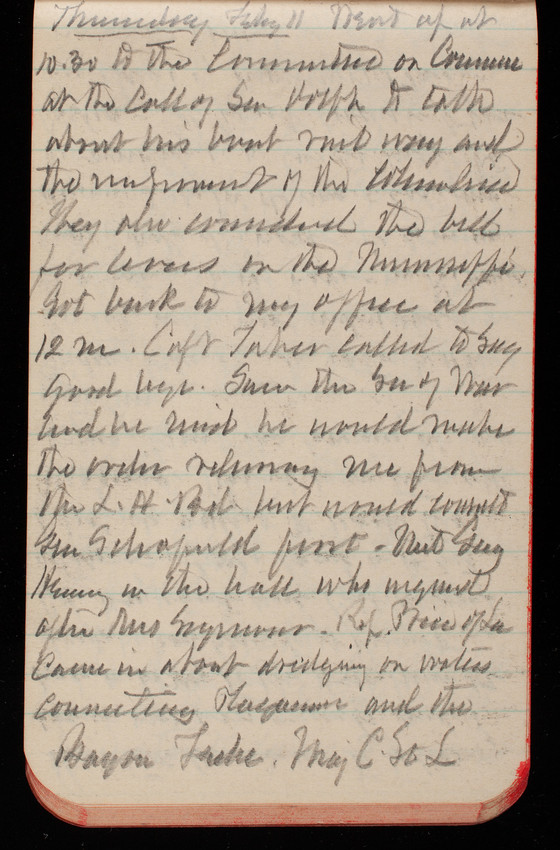 Thursday Feby 11 Went up at
10.30 to the Committee on Commerce
at the call of Sen Dolph to talk
about his boat rail way and
the improvment of the Columbia
They also considered the bill
for levees on the Mississippi.
Got back to my office at
12 m. Capt Taber called to say
good bye. Saw the Sec of War
and he said he would make
the order relieving me from
the L. H. Bd but would consult
Gen Schofield first - Met Guy
Henry in the hall who inquired
after Mrs Seymour. Rep. Price of La
came in about dredging on waters
connecting Plaquemine and the
Bayou Teche. Maj C. St L